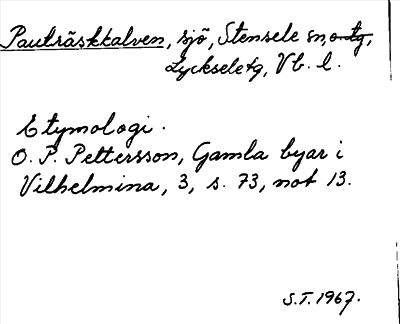 Pauträskkalven, sjö, Stensele sn, o. tg,
Lycksele tg, Vb. l.
Etymologi.
O. P. Pettersson, Gamla byar i
Vilhelmina, 3, s. 73, not 13.
S.T. 1967.